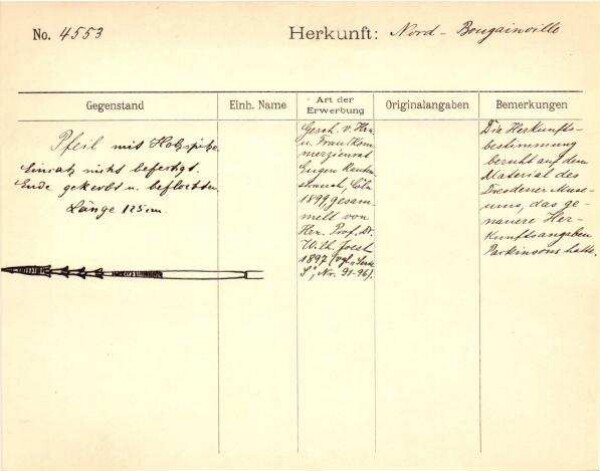 No. 4553
Herkunft: Nord-Bougainville
Gegenstand
Einh. Name
Art der
Erwerbung
Originalangaben
Bemerkungen
Pfeil mit Holzspitze.
Einsatz nicht befestigt.
Ende gekerbt u. beflochten
Länge 125 cm.
Gesch. v. Herrn
u. Frau Kom-
merzienrat
Eugen Rauten-
strauch, Cöln
1899, gesam-
melt von
Hrn. Prof. Dr.
Wilh. Joest
1897 (vgl.
S", Nr. 91-96).
Die Herkunfts-
bestimmung
beruht auf dem
Material des
Dresdener Muse-
ums, das ge-
nauere Her-
kunftsangaben
Parkinsons hatte.